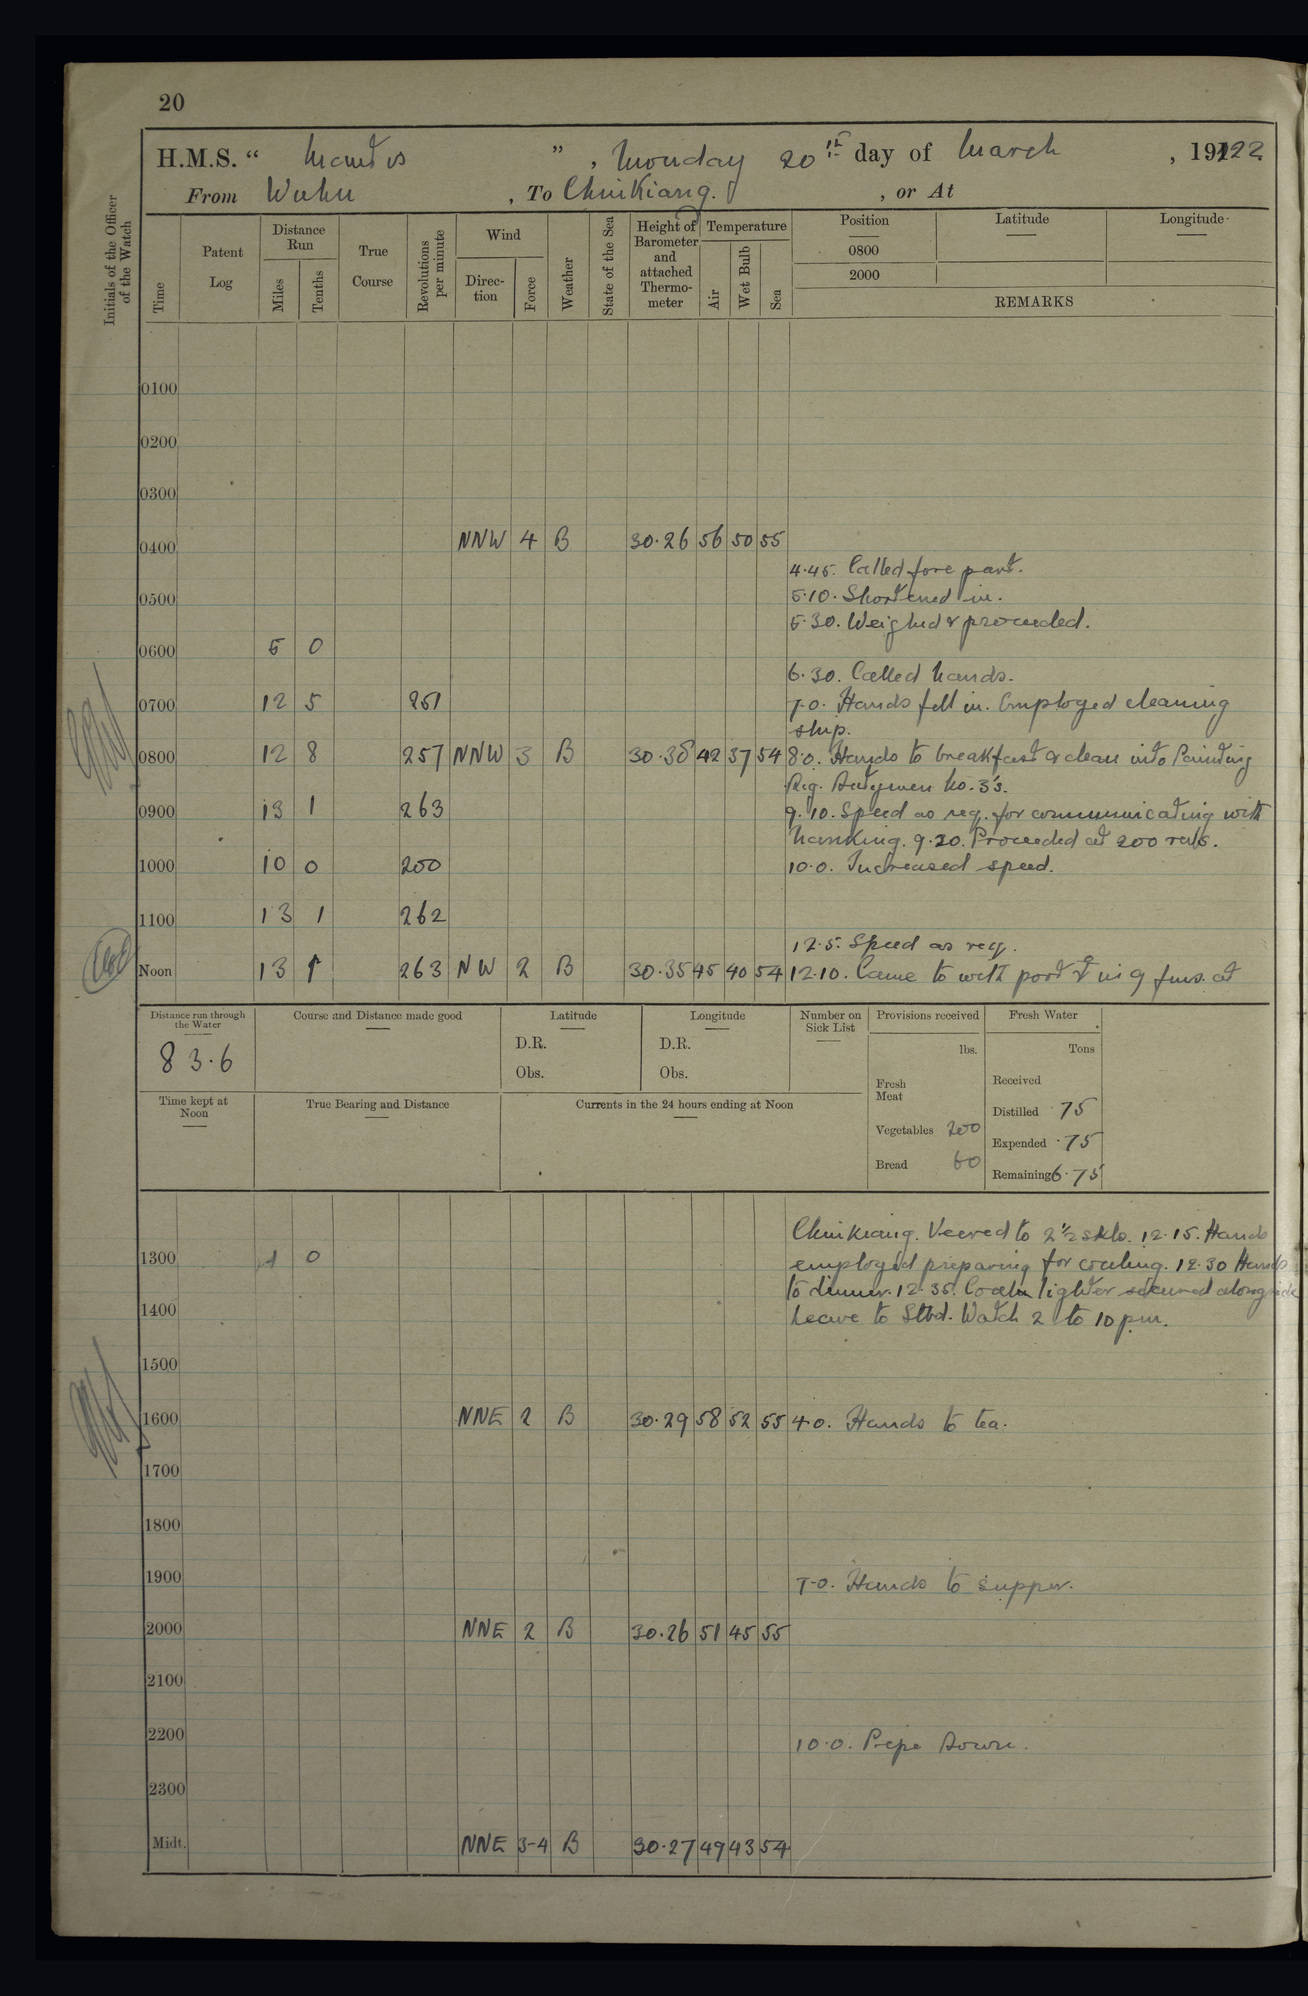 20
H.M.S. “ Mantis ” , Monday 20th day of March , 1922
From Wuhu , To Chinkiang. , or At
Initials of the Officer of the Watch
Time
Patent Log
Distance Run
Miles
Tenths
True Course
Revolutions per minute
Wind
Direction
Force
Weather
State of the Sea
Height of Barometer and attached Thermometer
Temperature
Air
Wet Bulb
Sea
Position Latitude Longitude
0800
2000
REMARKS
0100
0200
0300
0400 NNW 4 B 30.26 56 50 55
4.45. Called fore part.
0500 5.10. Shortened in.
5.30. Weighed & proceeded.
0600 5 0
6.30. Called hands.
0700 12 5 251 7.0. Hands fell in. Employed cleaning
ship.
0800 12 8 257 NNW 3 B 30.38 42 37 54 8.0. Hands to breakfast & clean into Painting
Rig. Dutymen No. 3's.
0900 13 1 263 9.10. Speed as req. for communicating with
Nanking. 9.20. Proceeded at 200 revs.
1000 10 0 200 10.0. Increased speed.
1100 13 1 262
12.5. Speed as req.
Noon 13 1 263 NW 2 B 30.35 45 40 54 12.10. Came to with port ⚓ in 9 fms. at
Distance run through the Water
83.6
Course and Distance made good
Latitude
D.R.
Obs.
Longitude
D.R.
Obs.
Number on Sick List
Provisions received
lbs.
Fresh Meat
Vegetables 200
Bread 60
Fresh Water
Tons
Received
Distilled .75
Expended .75
Remaining 6.75
Time kept at Noon
True Bearing and Distance
Currents in the 24 hours ending at Noon
Chinkiang. Veered to 2½ skls. 12.15. Hands
1300 4 0 employed preparing for coaling. 12.30 Hands
to dinner. 12.35. Coal lighter secured alongside
1400 Leave to Stbd. Watch 2 to 10 pm.
1500
1600 NNE 2 B 30.29 58 52 55 4.0. Hands to tea.
1700
1800
1900 7.0. Hands to supper.
2000 NNE 2 B 30.26 51 45 55
2100
2200 10.0. Pipe Down.
2300
Midt. NNE 3-4 B 30.27 49 43 54